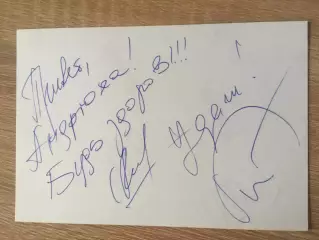 Привет,
Андрюха!
Будь здоров!!!
Удачи!